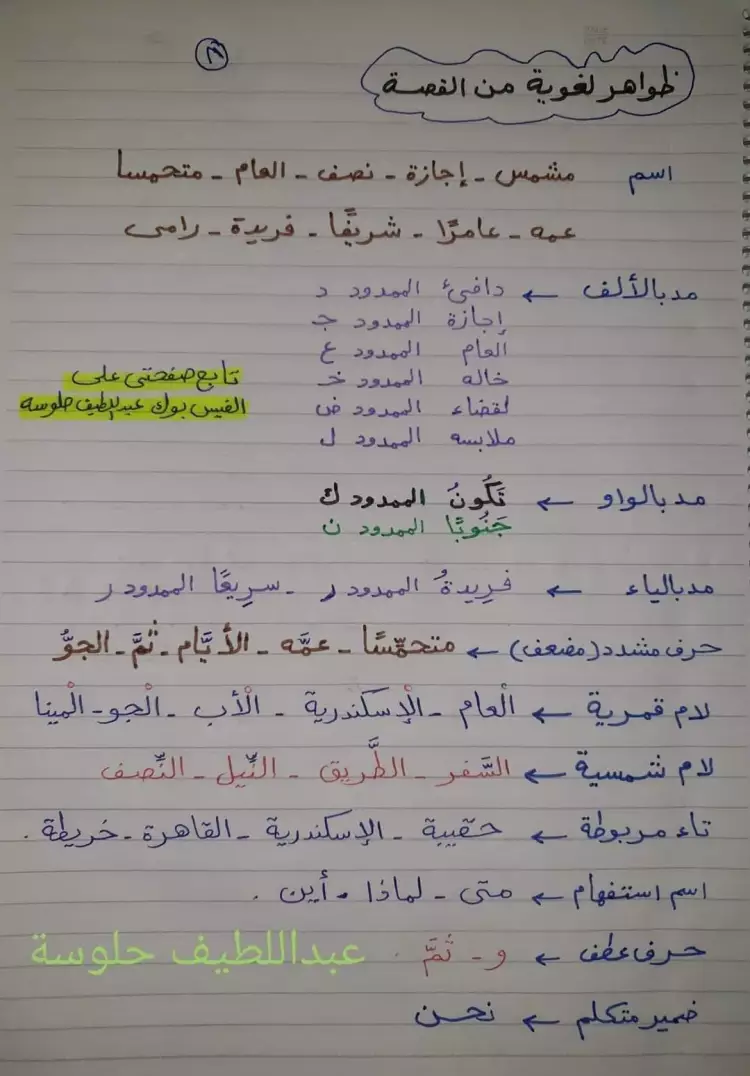 ٢٩
ظواهر لغوية من القصة
اسم مشمس - إجازة - نصف - العام - متحمسا
عمه - عامرًا - شريفًا - فريدة - رامى
مد بالألف ← دافئ الممدود د
إجازة الممدود جـ
العام الممدود ع
خاله الممدود خـ
لقضاء الممدود ض
ملابسه الممدود ل
تابع صفحتى على
الفيس بوك عبداللطيف حلوسة
مد بالواو ← تَكُونُ الممدود ك
جَنُوبًا الممدود ن
مد بالياء ← فَرِيدةُ الممدود ر - سرِيعًا الممدود ر
حرف مشدد (مضعف) ← متحمِّسًا - عمَّه - الأيَّام - ثمَّ - الجوُّ
لام قمرية ← الْعام - الْإسكندرية - الْأب - الْجو - الْمينا
لام شمسية ← السَّفر - الطَّريق - النِّيل - النِّصف
تاء مربوطة ← حقيبة - الإسكندرية - القاهرة - خريطة .
اسم استفهام ← متى - لماذا - أين .
حرف عطف ← و - ثُمَّ .
عبداللطيف حلوسة
ضمير متكلم ← نحن